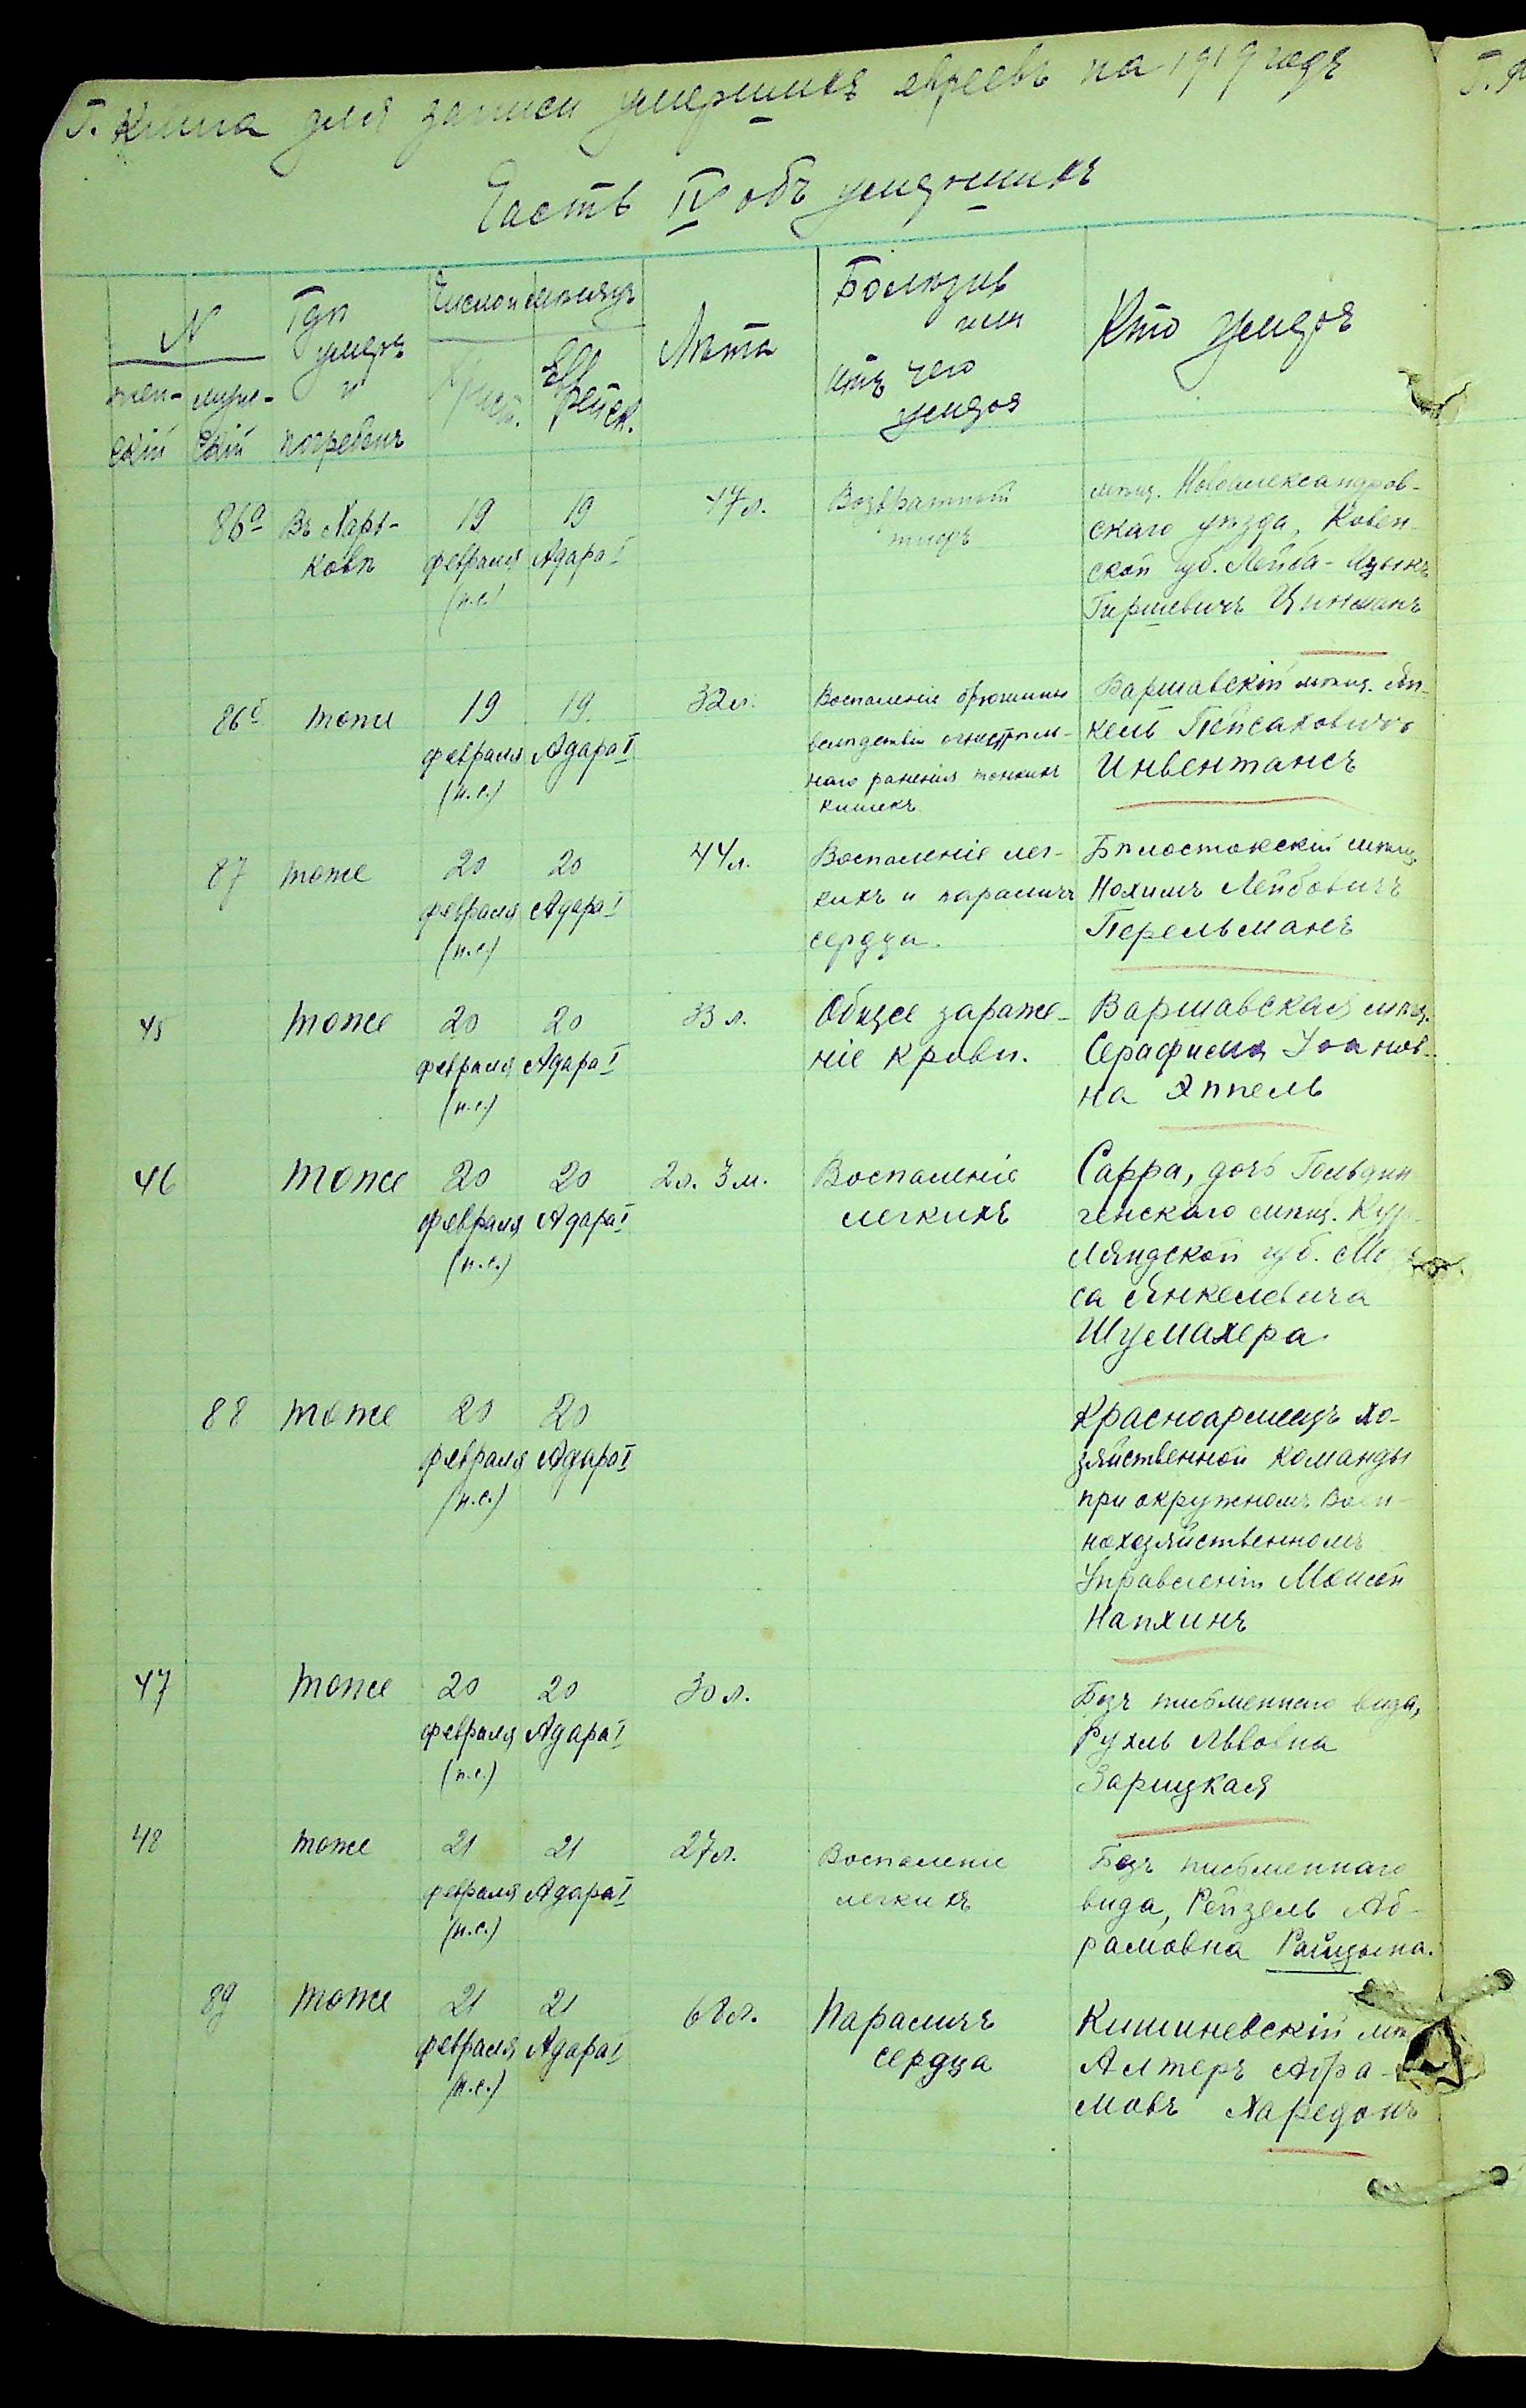 Г. Книга для записи умершихъ евреевъ на 1919 годъ
Часть IV объ умершихъ
N
жен-
скій
муже-
скій
Гдѣ
умеръ
и
погребенъ
Число и мѣсяцъ
Христ.
Ев-
рейск.
Лѣта
Болѣзнь
или
отъ чего
умеръ
Кто умеръ
86а Въ Харь- 19 19 47 л. Возвратный мѣщ. Новоалександров-
ковѣ февраля Адара I тифъ скаго уѣзда, Ковен-
(н.с.) ской губ. Лейба-Ицыкъ
Гиршевичъ Цинманъ
86б тоже 19 19 32 л. Воспаленіе брюшины Варшавскій мѣщ. Ян-
февраля Адара I вслѣдствіе огнестрѣль- кель Пейсаховичъ
(н.с.) наго раненія тонкихъ Инвентансъ
кишекъ
87 тоже 20 20 44 л. Воспаленіе лег- Бѣлостокскій мѣщ.
февраля Адара I кихъ и параличъ Нохимъ Лейбовичъ
(н.с.) сердца. Перельманъ
45 тоже 20 20 33 л. Общее зараже- Варшавская мѣщ.
февраля Адара I ніе крови. Серафима Іоанов-
(н.с.) на Яппель
46 тоже 20 20 2 л. 3 м. Воспаленіе Сарра, дочь Гольдин
февраля Адара I легкихъ генскаго мѣщ. Кур-
(н.с.) ляндской губ.
са Янкелевича
Шумахера.
88 тоже 20 20 Красноармеецъ хо-
февраля Адара I зяйственной команды
(н.с.) при окружномъ Воен-
нохозяйственномъ
Управленіи Моисей
Напхинъ
47 тоже 20 20 30 л. Безъ письменнаго вида,
февраля Адара I Рухль Львовна
(н.с.) Зарицкая
48 тоже 21 21 27 л. Воспаленіе Безъ письменнаго
февраля Адара I легкихъ вида, Рейзель Аб-
(н.с.) рамовна Райцына.
89 тоже 21 21 68 л. Параличъ Кишиневскій мѣ
февраля Адара I сердца Алтеръ Абра-
(н.с.) мовъ Харедонъ